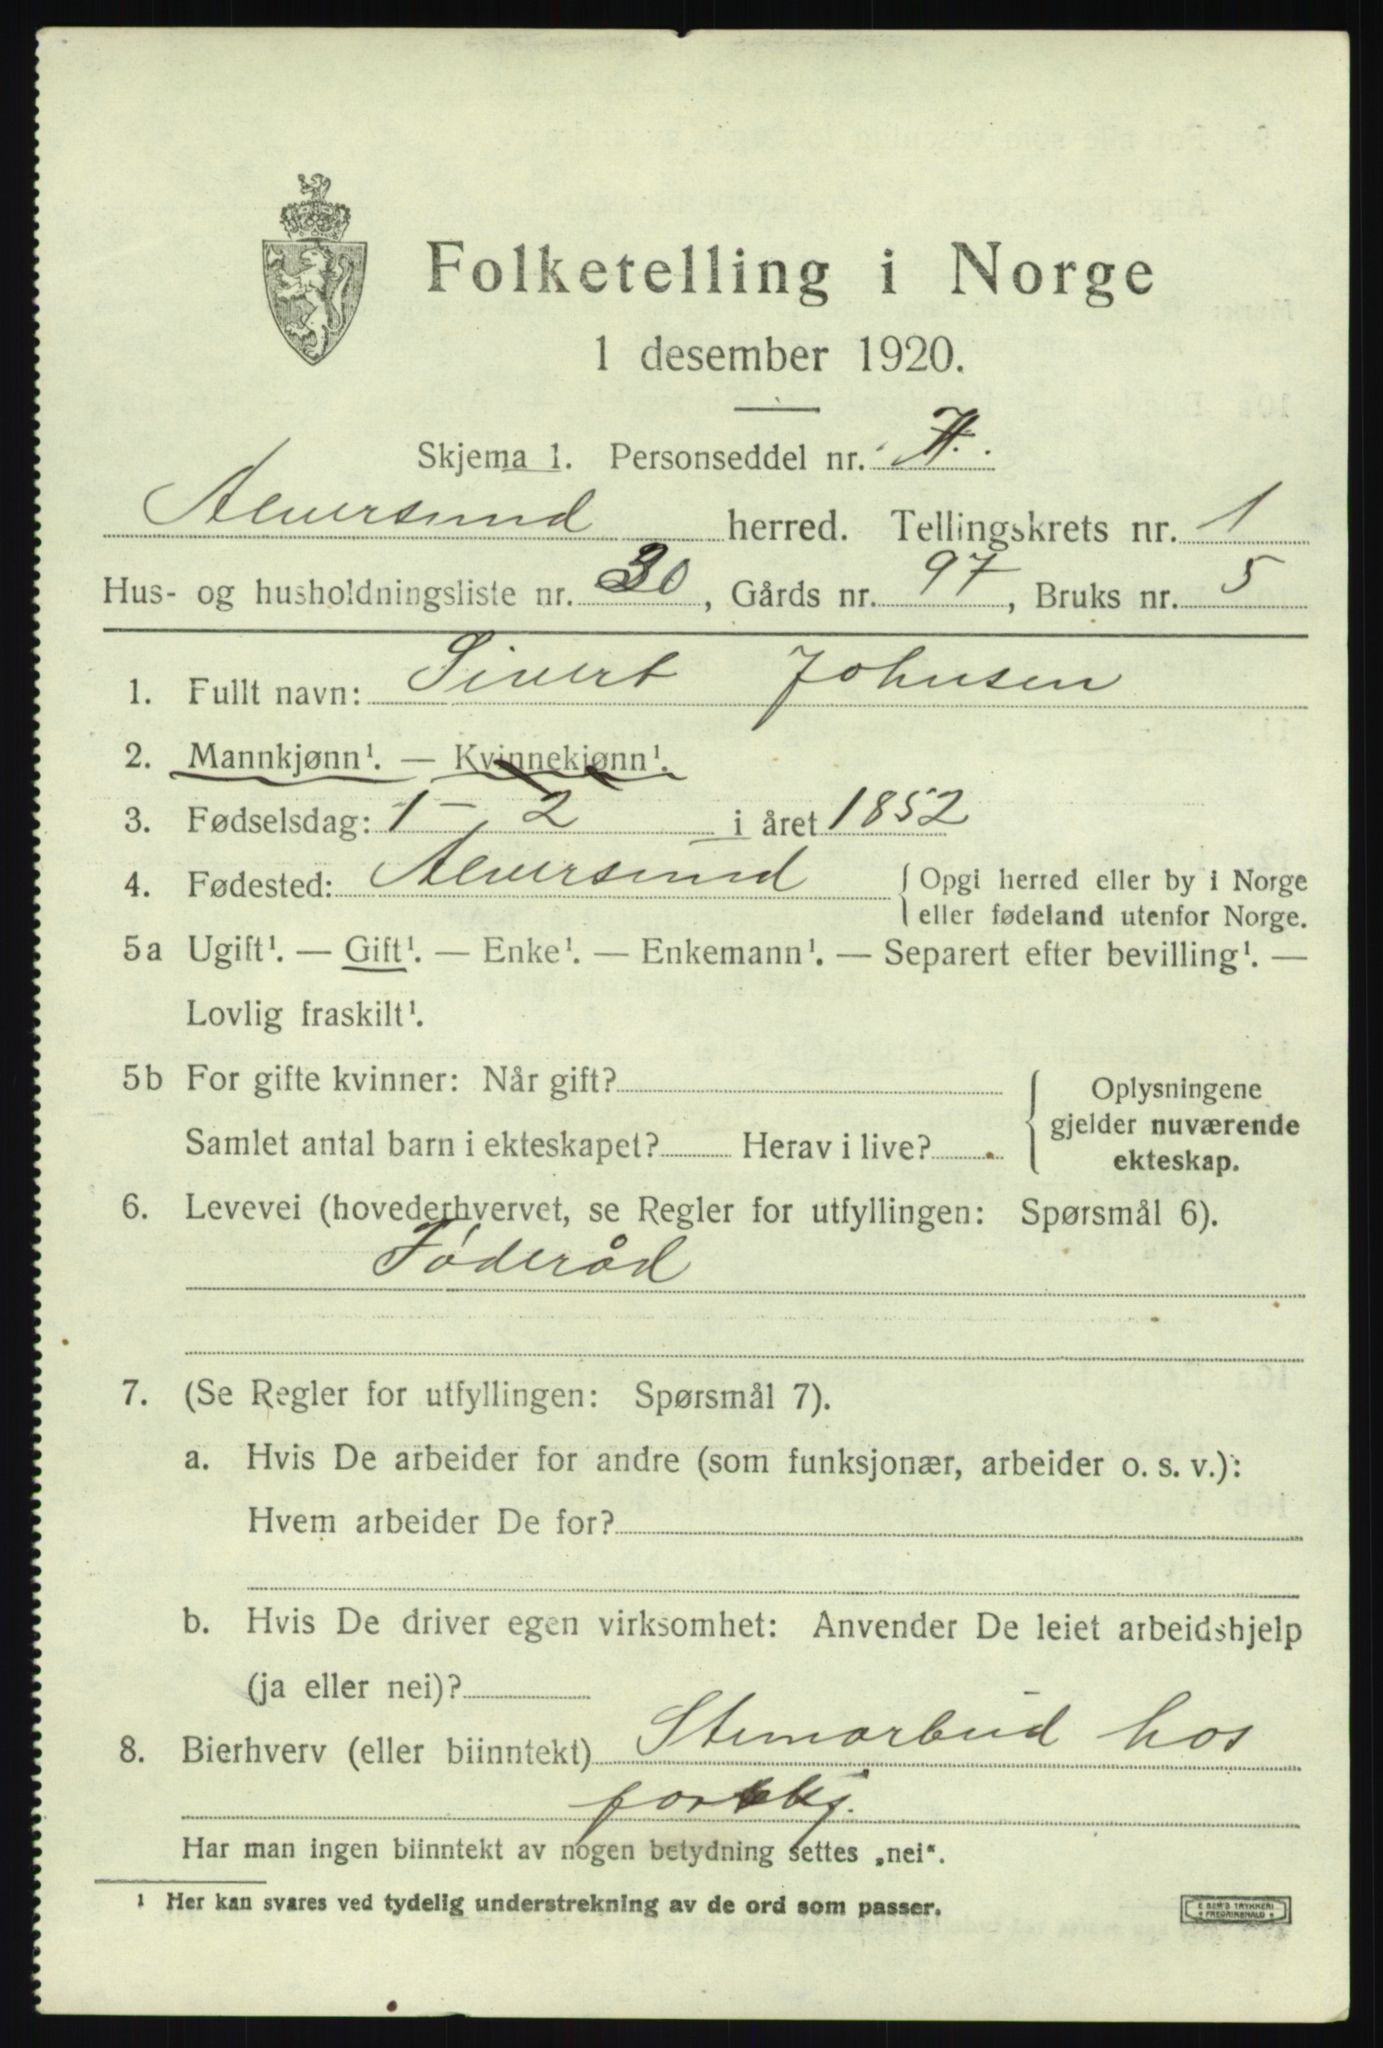 Folketelling i Norge
1 desember 1920.
Skjema 1. Personseddel nr.
Alversund herred. Tellingskrets nr. 1
Hus- og husholdningsliste nr. 30, Gårds nr. 97, Bruks nr. 5
1. Fullt navn: Sivert Johnsen
2. Mannkjønn¹. — Kvinnekjønn¹.
3. Fødselsdag: 1 - 2 i året 1852
4. Fødested: Alversund { Opgi herred eller by i Norge
eller fødeland utenfor Norge.
5a Ugift¹. — Gift¹. — Enke¹. — Enkemann¹. — Separert efter bevilling¹. —
Lovlig fraskilt¹.
5b For gifte kvinner: Når gift? { Oplysningene
gjelder nuværende
Samlet antal barn i ekteskapet? Herav i live?
ekteskap.
6. Levevei (hovederhvervet, se Regler for utfyllingen: Spørsmål 6).
Föderåd
7. (Se Regler for utfyllingen: Spørsmål 7).
a. Hvis De arbeider for andre (som funksjonær, arbeider o. s. v.):
Hvem arbeider De for?
b. Hvis De driver egen virksomhet: Anvender De leiet arbeidshjelp
(ja eller nei)?
8. Bierhverv (eller biinntekt) hos
Har man ingen biinntekt av nogen betydning settes „nei“.
¹ Her kan svares ved tydelig understrekning av de ord som passer.
E SEM'S TRYKKERI
FREDRIKSHALD